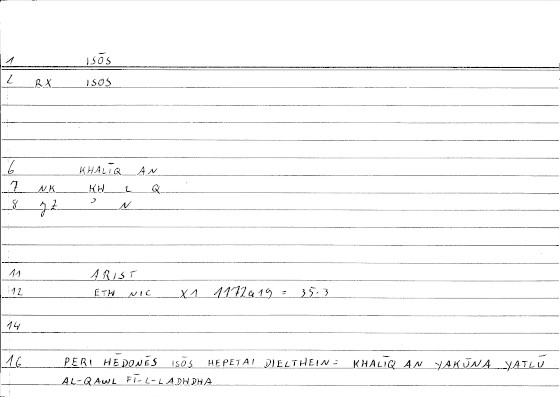 1 ISŌS
2 RX ISOS
6 KHALĪQ AN
7 NK KW L Q
8 JZ ʾ N
11 ARIST
12 ETH NIC X1 1172a19 = 35.3
14
16 PERI HĒDONĒS ISŌS HEPETAI DIELTHEIN = KHALĪQ AN YAKŪNA YATLŪ
AL-QAWL FĪ-L-LADHDHA